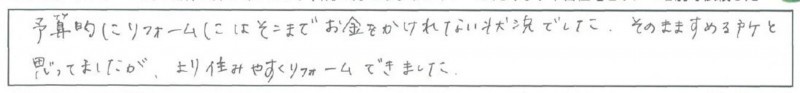 予算的にリフォームにはそこまでお金をかけれない状況でした。そのまますめる戸ケと
思ってましたが、より住みやすくリフォームできました。